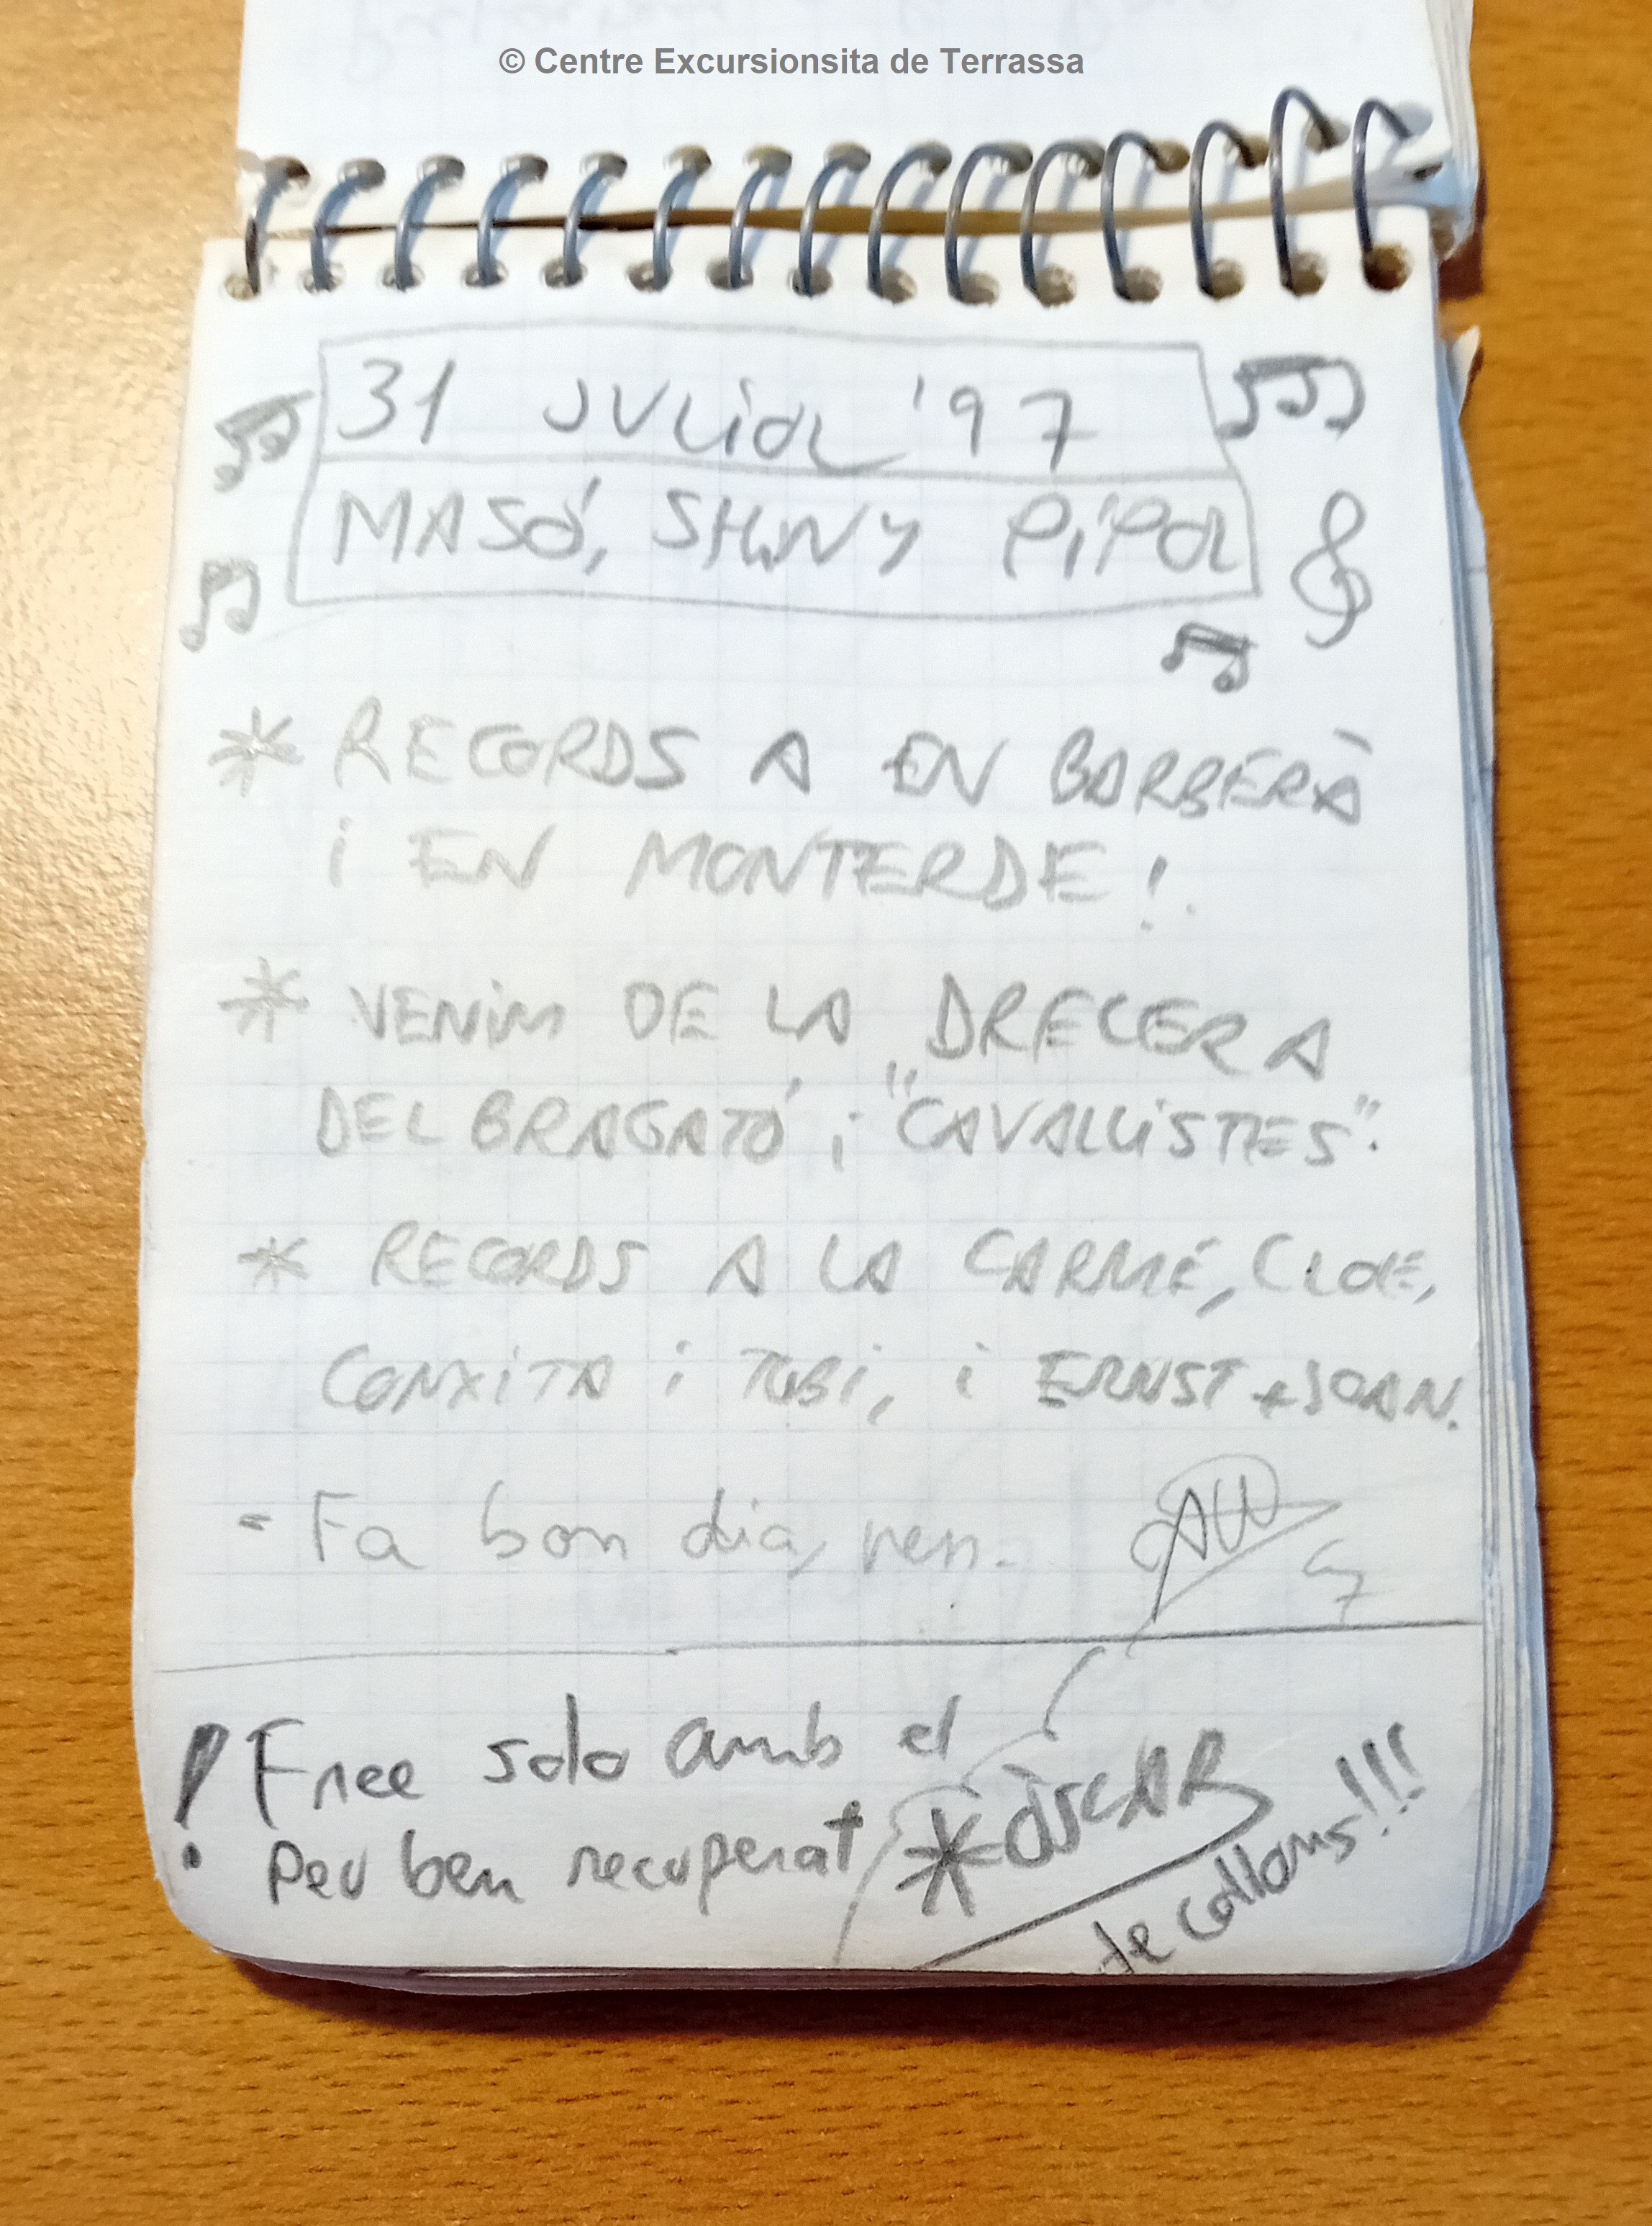 © Centre Excursionsita de Terrassa
31 JULIOL '97
MASÓ, SHINY PIPOL
* RECORDS A EN BARBERÀ
i EN MONTERDE!
* VENIM DE LA DRECERA
DEL BRAGATÓ i "CAVALLISTES".
* RECORDS A LA CARME, CLOE,
CONXITA i TOBI, i ERNST + JOAN.
- Fa bon dia, nen.
! Free solo amb el
peu ben recuperat
* ÒSCAR
de collons!!!